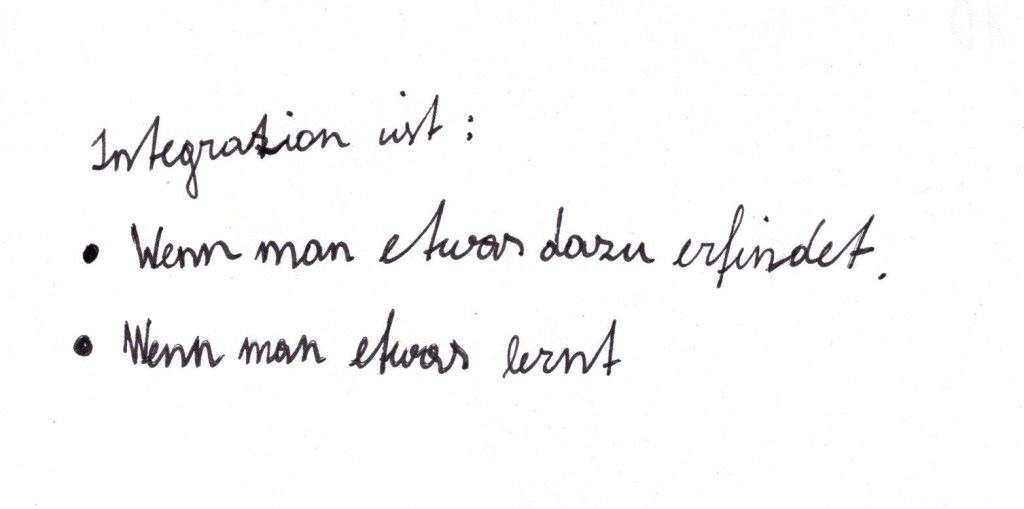 Integration ist:
• Wenn man etwas dazu erfindet.
• Wenn man etwas lernt